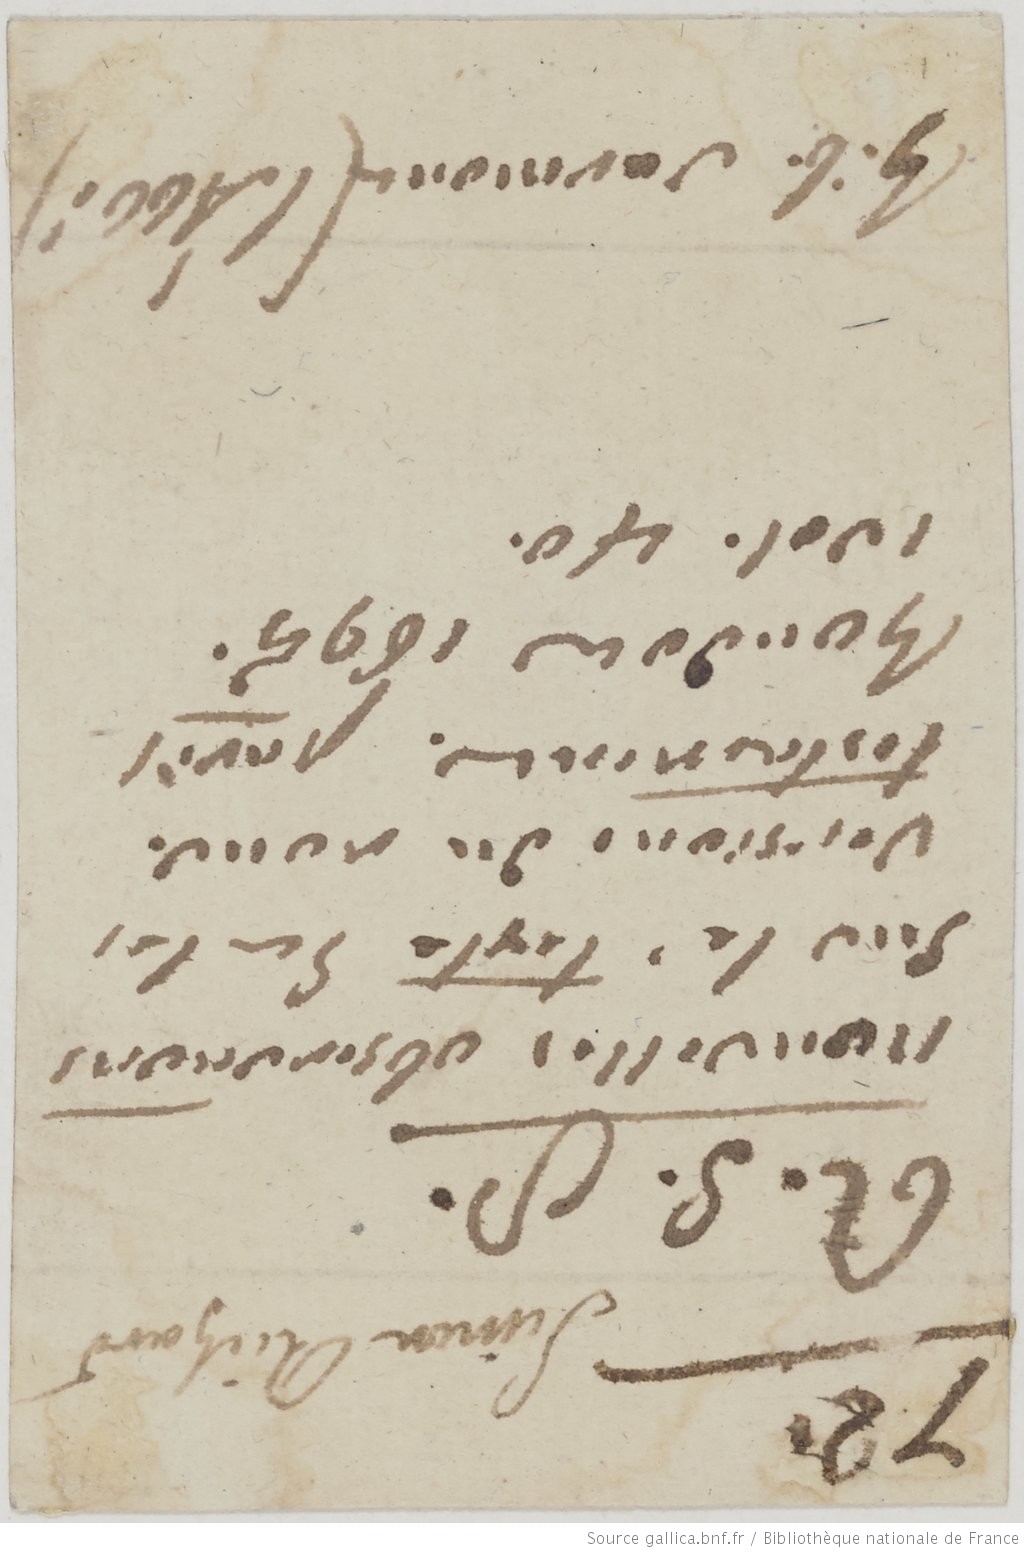 72.
Simon Richard
R. S. P.
nouvelles observaons
sur le texte Su les
versions du nouv.
testament. paris
Boudou 1695.
1 vol. 4o.
B. b. (l'Abb.)
Source gallica.bnf.fr / Bibliothèque nationale de France